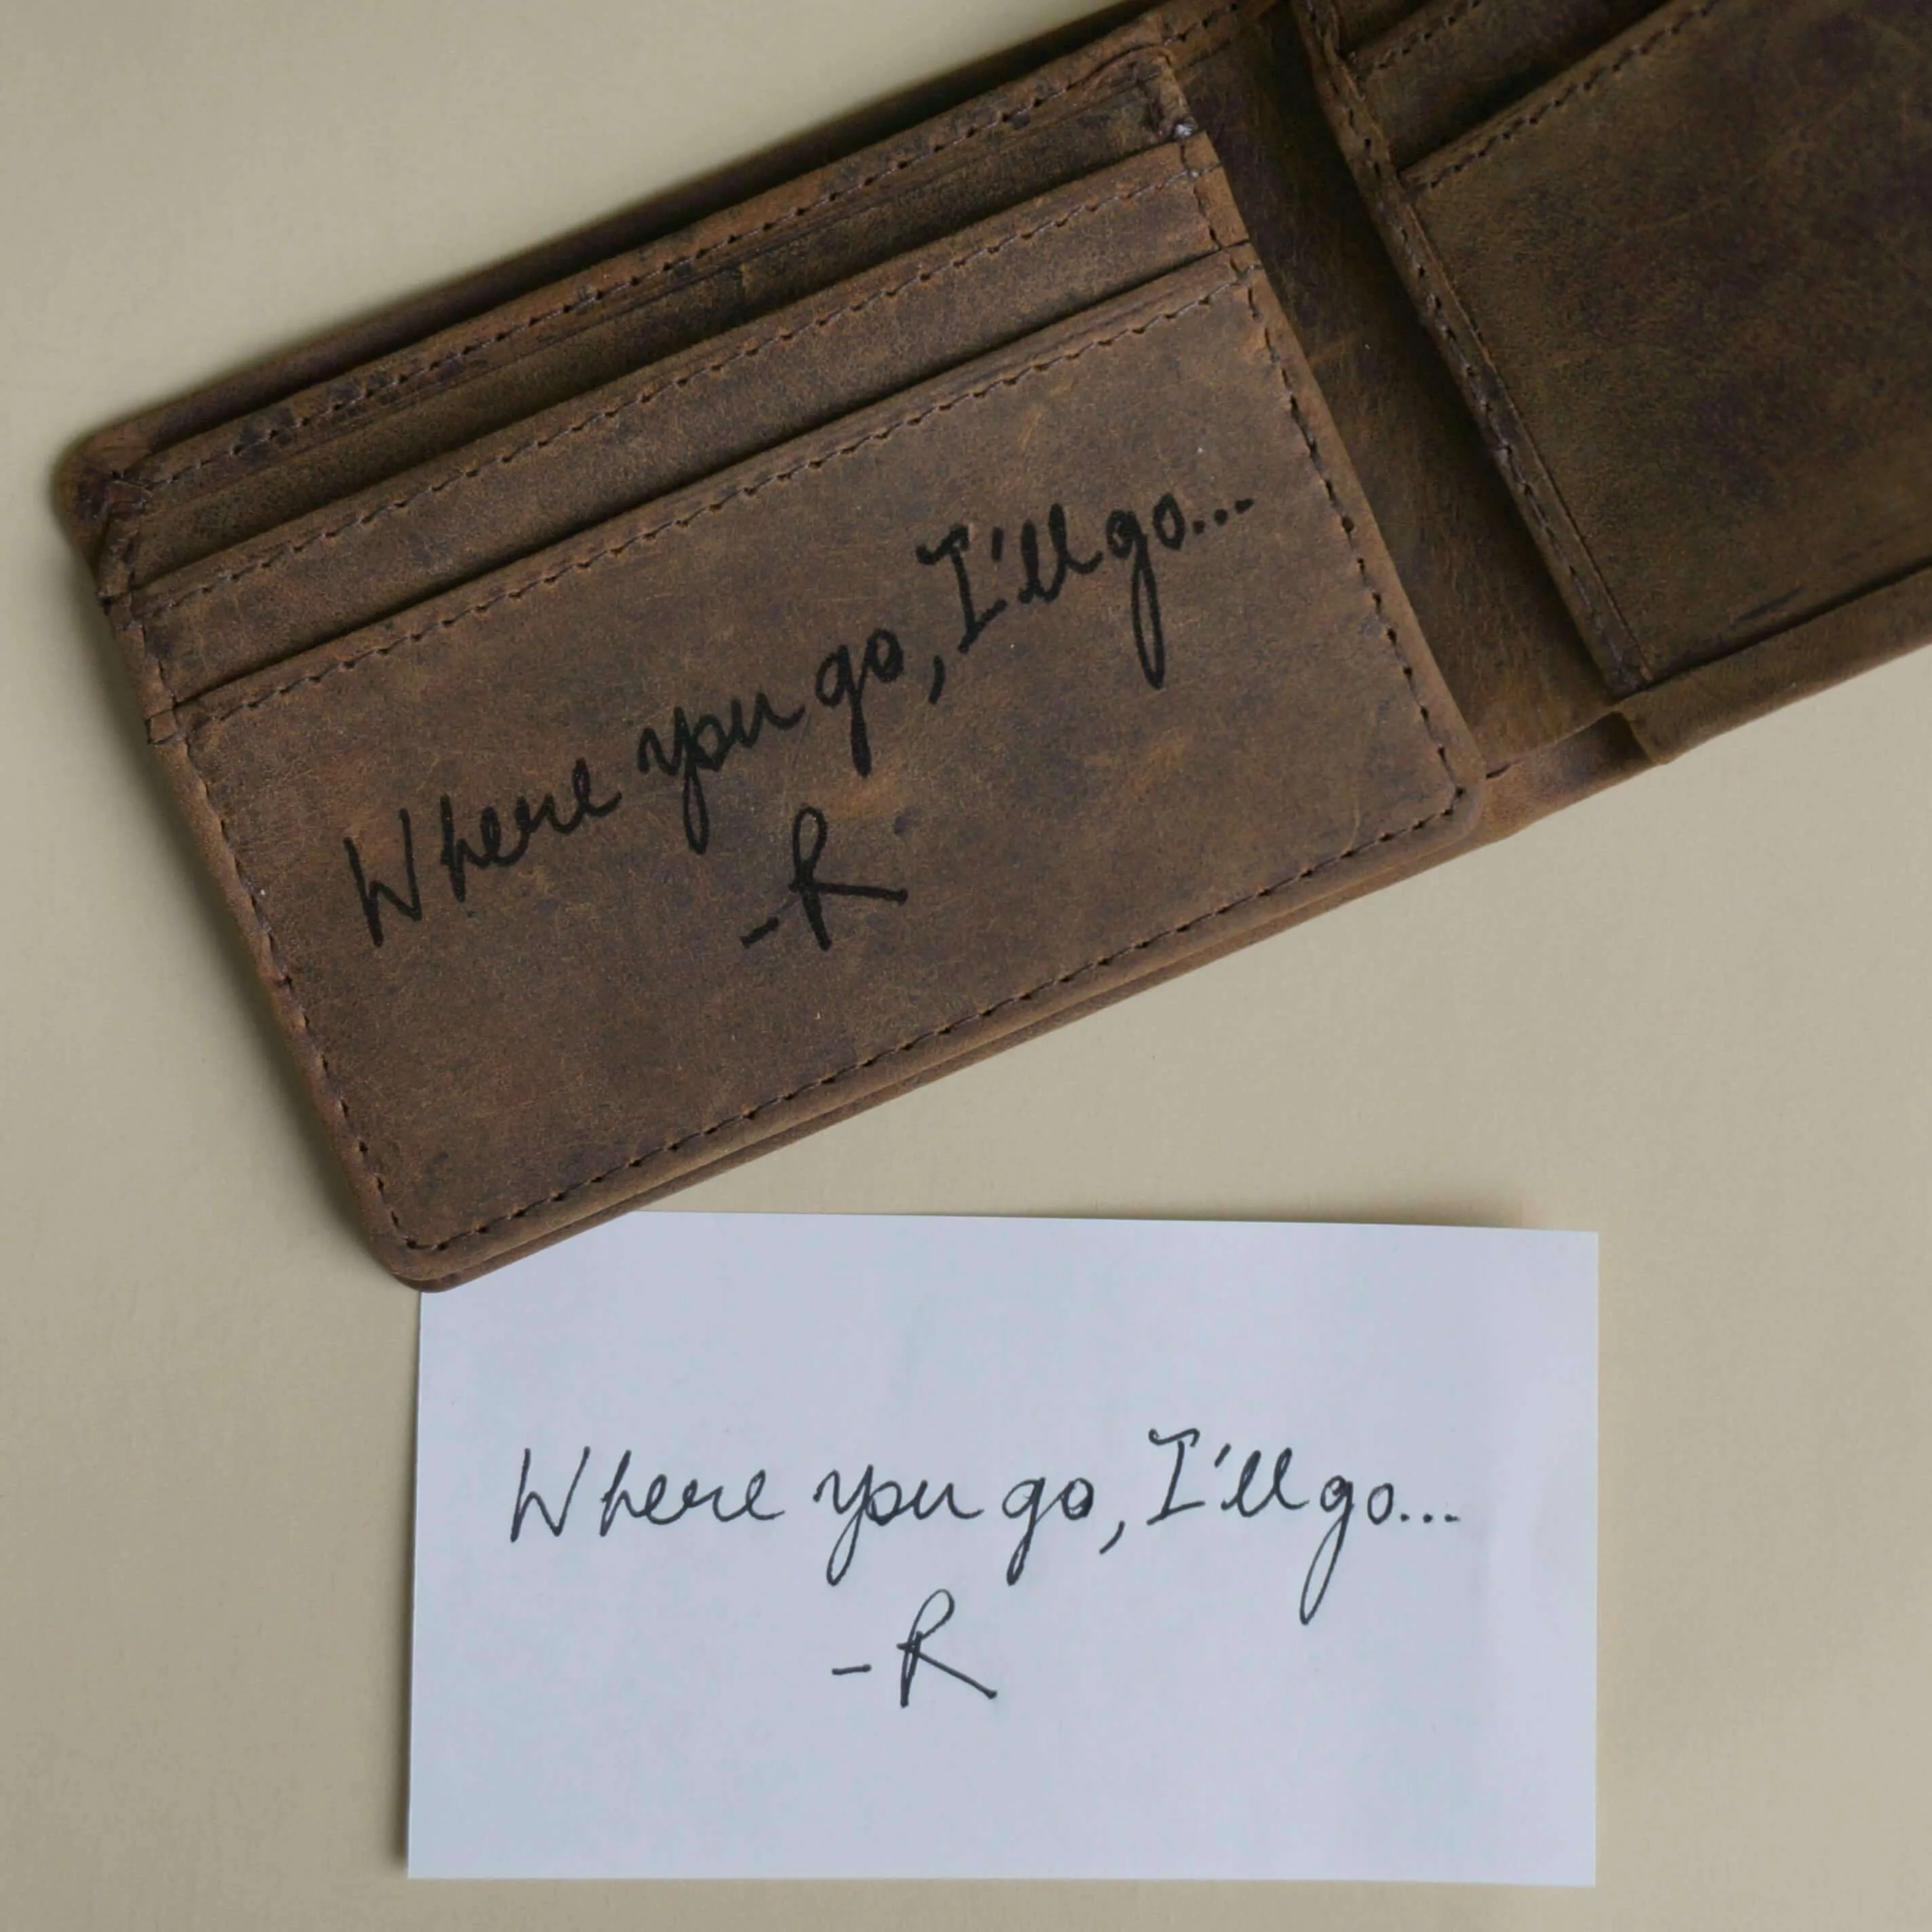 Where you go, I'll go...
-R
Where you go, I'll go...
-R